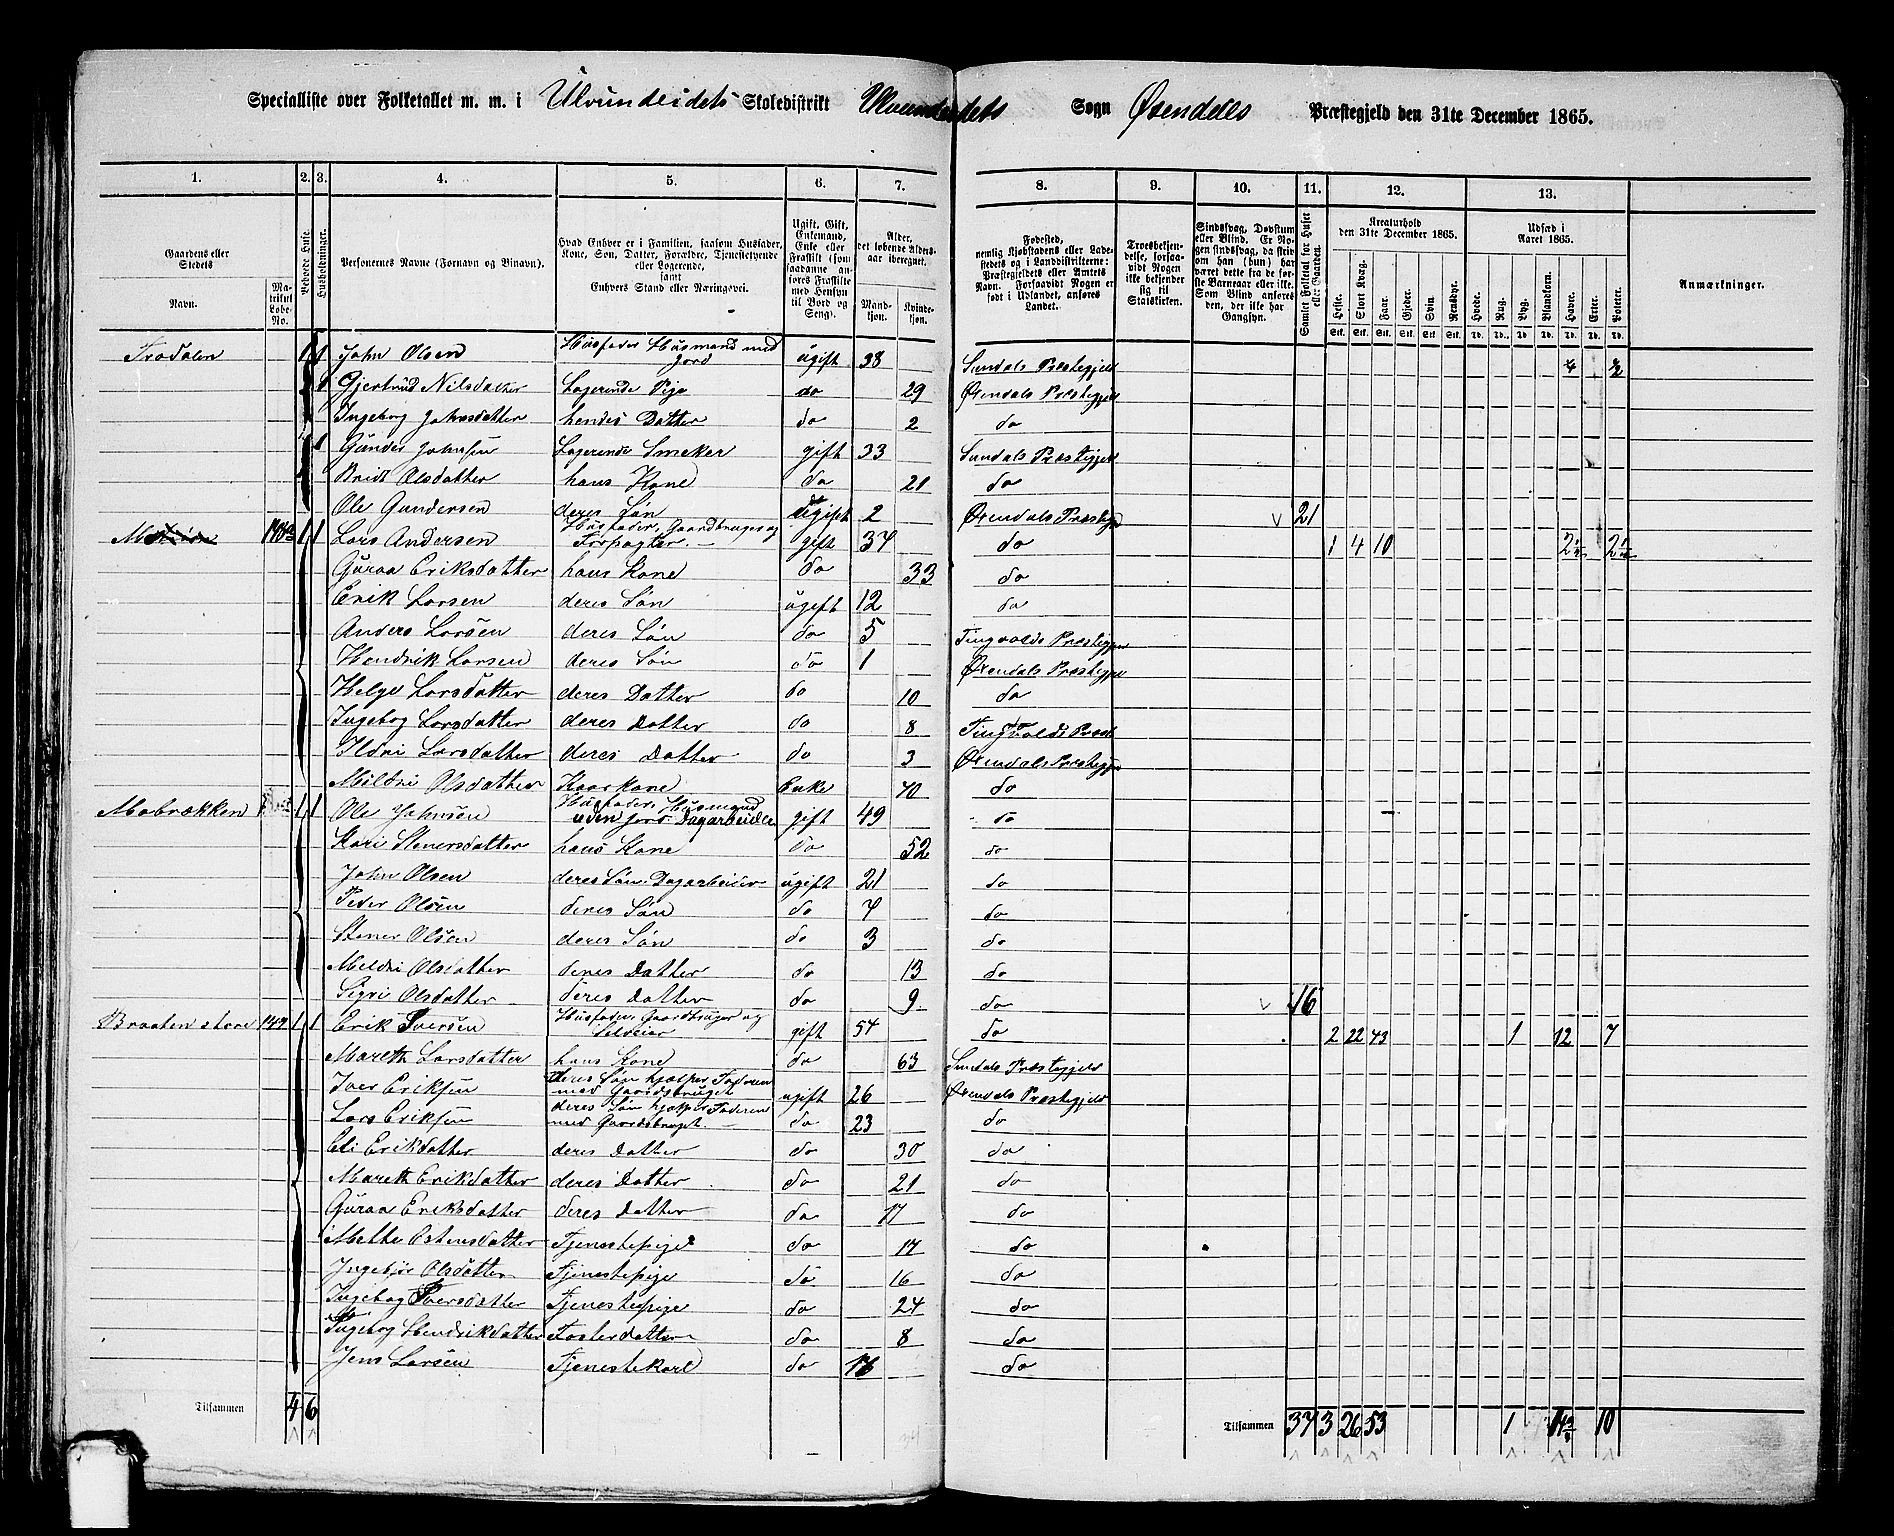 Specialliste over Folketallet m. m. i Ulvundeidets Skoledistrikt Ulvundeidets Sogn Øxendals Præstegjeld den 31te December 1865.
1. 2. 3. 4. 5. 6. 7. 8. 9. 10. 11. 12. 13.
Gaardens eller Stedets Navn. Matrikul Løbe-No. Beboede Huse. Husholdninger. Personernes Navne (Fornavn og Tilnavn). Hvad Enhver er i Familien, saasom Husfader, Kone, Søn, Datter, Forældre, Tjenestetyende eller Logerende, samt Enhvers Stand eller Næringsvei. Ugift, Gift, Enkemand, Enke eller Fraskilt (som saadanne anføres Fraskilte med Hensyn til Bord og Seng). Alder, det løbende Aldersaar iberegnet. Mandkjøn. Kvindekjøn.
Fødested, nemlig Kjøbstadens eller Ladestedets og i Landdistrikterne: Præstegjeldets eller Amtets Navn. Forsaavidt Nogen er født i Udlandet, anføres Landet. Troesbekjendelse, forsaavidt Nogen ikke bekjender sig til Statskirken. Sindssvag, Døvstum eller Blind. Er Nogen sindssvag, da skriv om han (hun) har været dette fra de første Barneaar eller ikke. Som Blind anføres den, der ikke har Gangsyn. Samlet Folketal for Huset eller Gaarden. Kreaturhold den 31te December 1865. Heste. Stort Kvæg. Faar. Gjeder. Svin. Rensdyr. Udsæd i Aaret 1865. Hvede. Rug. Byg. Blandkorn. Havre. Erter. Poteter. Anmærkninger.
Trædalen 1 1 John Olsen Husfader Husmand med Jord ugift 38 Sundals Præstegjeld
1 Gjertrud Nilsdatter Logerende Pige do 29 Øxendals Præstegjeld
Ingeborg Johnsdatter hendes Datter do 2 do
1 Gunder Johnsen Logerende Smeker gift 33 Sundals Præstegjeld
Bridt Olsdatter hans Kone do 21 do
Ole Gundersen deres Søn ugift 2 Øxendals Præstegj 21
1 1 Lars Andersen Husfader, Gaardbruger og Forpagter gift 37 do 1 4 10
Guraa Eriksdatter hans Kone do 33 do
Erik Larsen deres Søn ugift 12 do
Anders Larsen deres Søn do 5 Tingvolds Præstegjeld
Hendrik Larsen deres Søn do 1 Øxendals Præstegjeld
Helge Larsdatter deres Datter do 10 do
Ingebog Larsdatter deres Datter do 8 Tingvolds Præst
Ildri Larsdatter deres Datter do 3 Øxendals Præstegjeld
Mildri Olsdatter Kaarkone Enke 70 do
Mobrækken 1 1 Ole Johnsen Husfader, Husmand uden Jord Dagarbeider gift 49 do
Kari Stenersdatter hans Kone do 52 do
John Olsen deres Søn Dagarbeider ugift 21 do
Peder Olsen deres Søn do 7 do
Stener Olsen deres Søn do 3 do
Mildri Olsdatter deres Datter do 13 do
Sigri Olsdatter deres Datter do 9 do 16
Braaten store 147 1 1 Erik Iversen Husfader, Gaardbruger og Selveier gift 54 do 2 22 43 1 12 7
Mareth Larsdatter hans Kone do 63 Sundals Præstegjeld
Iver Eriksen deres Søn hjælper Faderen med Gaardsbruget ugift 26 Øxendals Præstegjeld
Lars Eriksen deres Søn hjælper Faderen med Gaardsbruget do 23 do
Eli Eriksdatter deres Datter do 30 do
Mareth Eriksdatter deres Datter do 21 do
Guraa Eriksdatter deres Datter do 17 do
Mette Estensdatter Tjenestepige do 17 do
Ingebor Olsdatter Tjenestepige do 16 do
Ingebog Iversdatter Tjenestepige do 24 do
Ingebog Hendriksdatter Fosterdatter do 8 do
Jens Larsen Tjenestekarl do 16 do
Tilsammen 4 6 Tilsammen 37 3 26 53 1 10